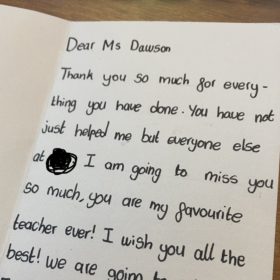 Dear Ms Dawson
Thank you so much for every-
thing you have done. You have not
just helped me but everyone else
at I am going to miss you
so much, you are my favourite
teacher ever! I wish you all the
best! we are going to